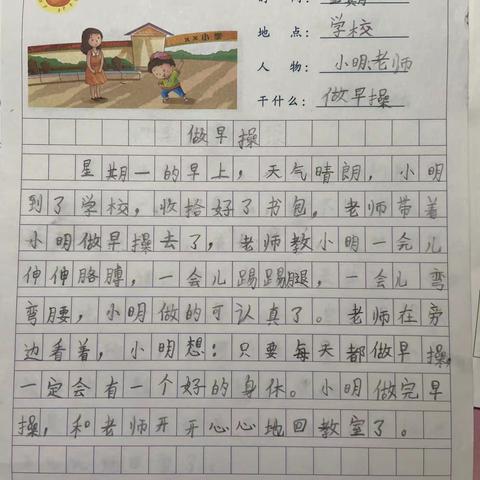 ××小学
时 间： 星期一
地 点： 学校
人 物： 小明、老师
干什么： 做早操
做早操
星期一的早上，天气晴朗，小明
到了学校，收拾好了书包，老师带着
小明做早操去了，老师教小明一会儿
伸伸胳膊，一会儿踢踢腿，一会儿弯
弯腰，小明做的可认真了。老师在旁
边看着，小明想：只要每天都做早操，
一定会有一个好的身体。小明做完早
操，和老师开开心心地回教室了。